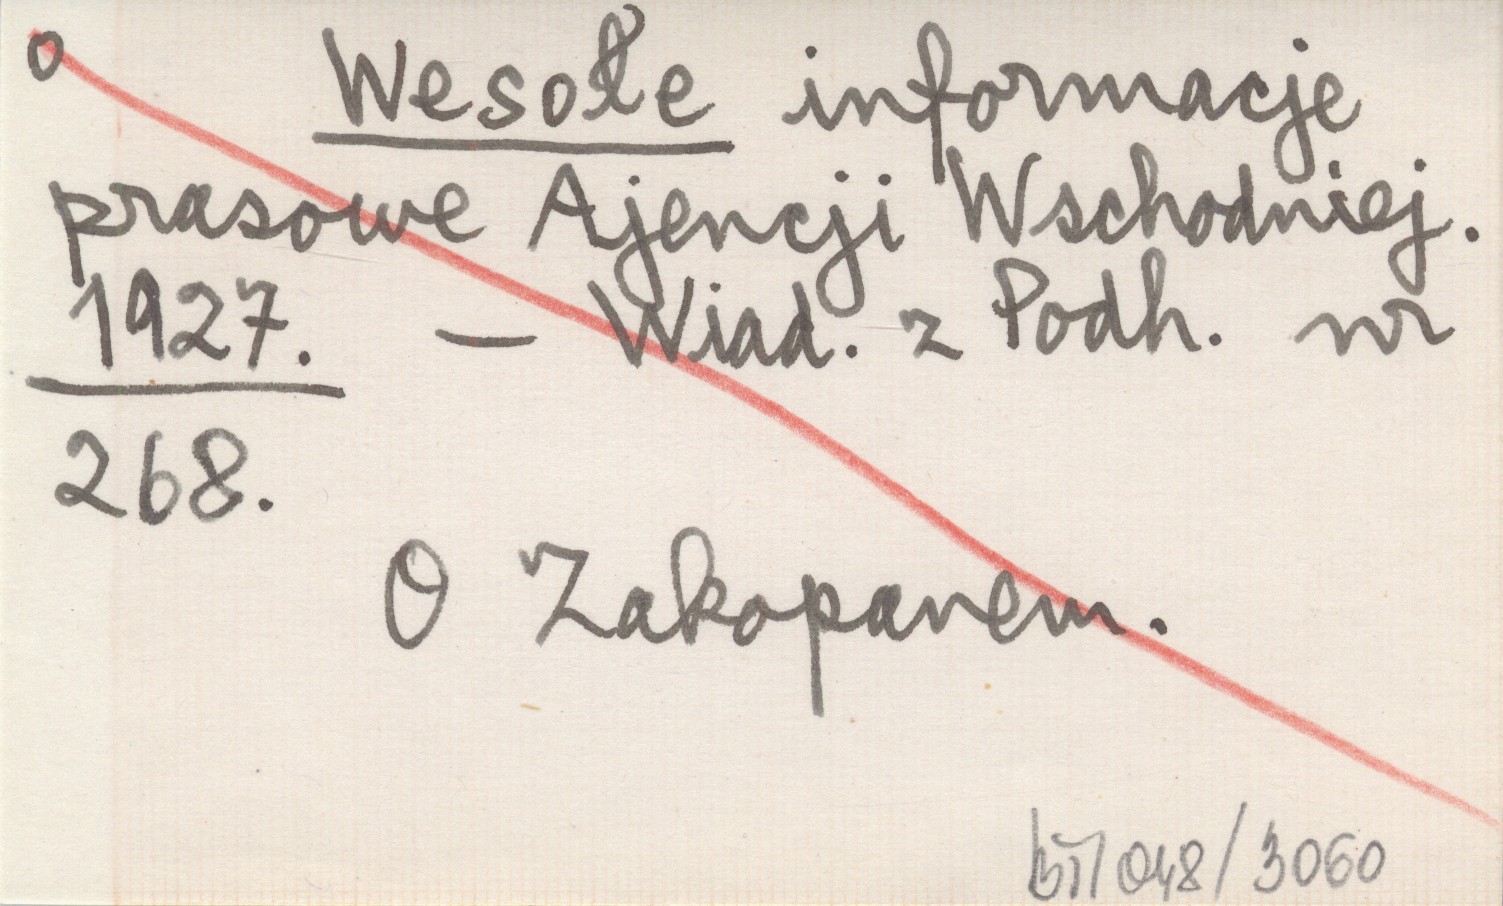 o Wesołe informacje
prasowe Ajencji Wschodniej.
1927. — Wiad. z Podh. nr
268.
O Zakopanem.
048/3060